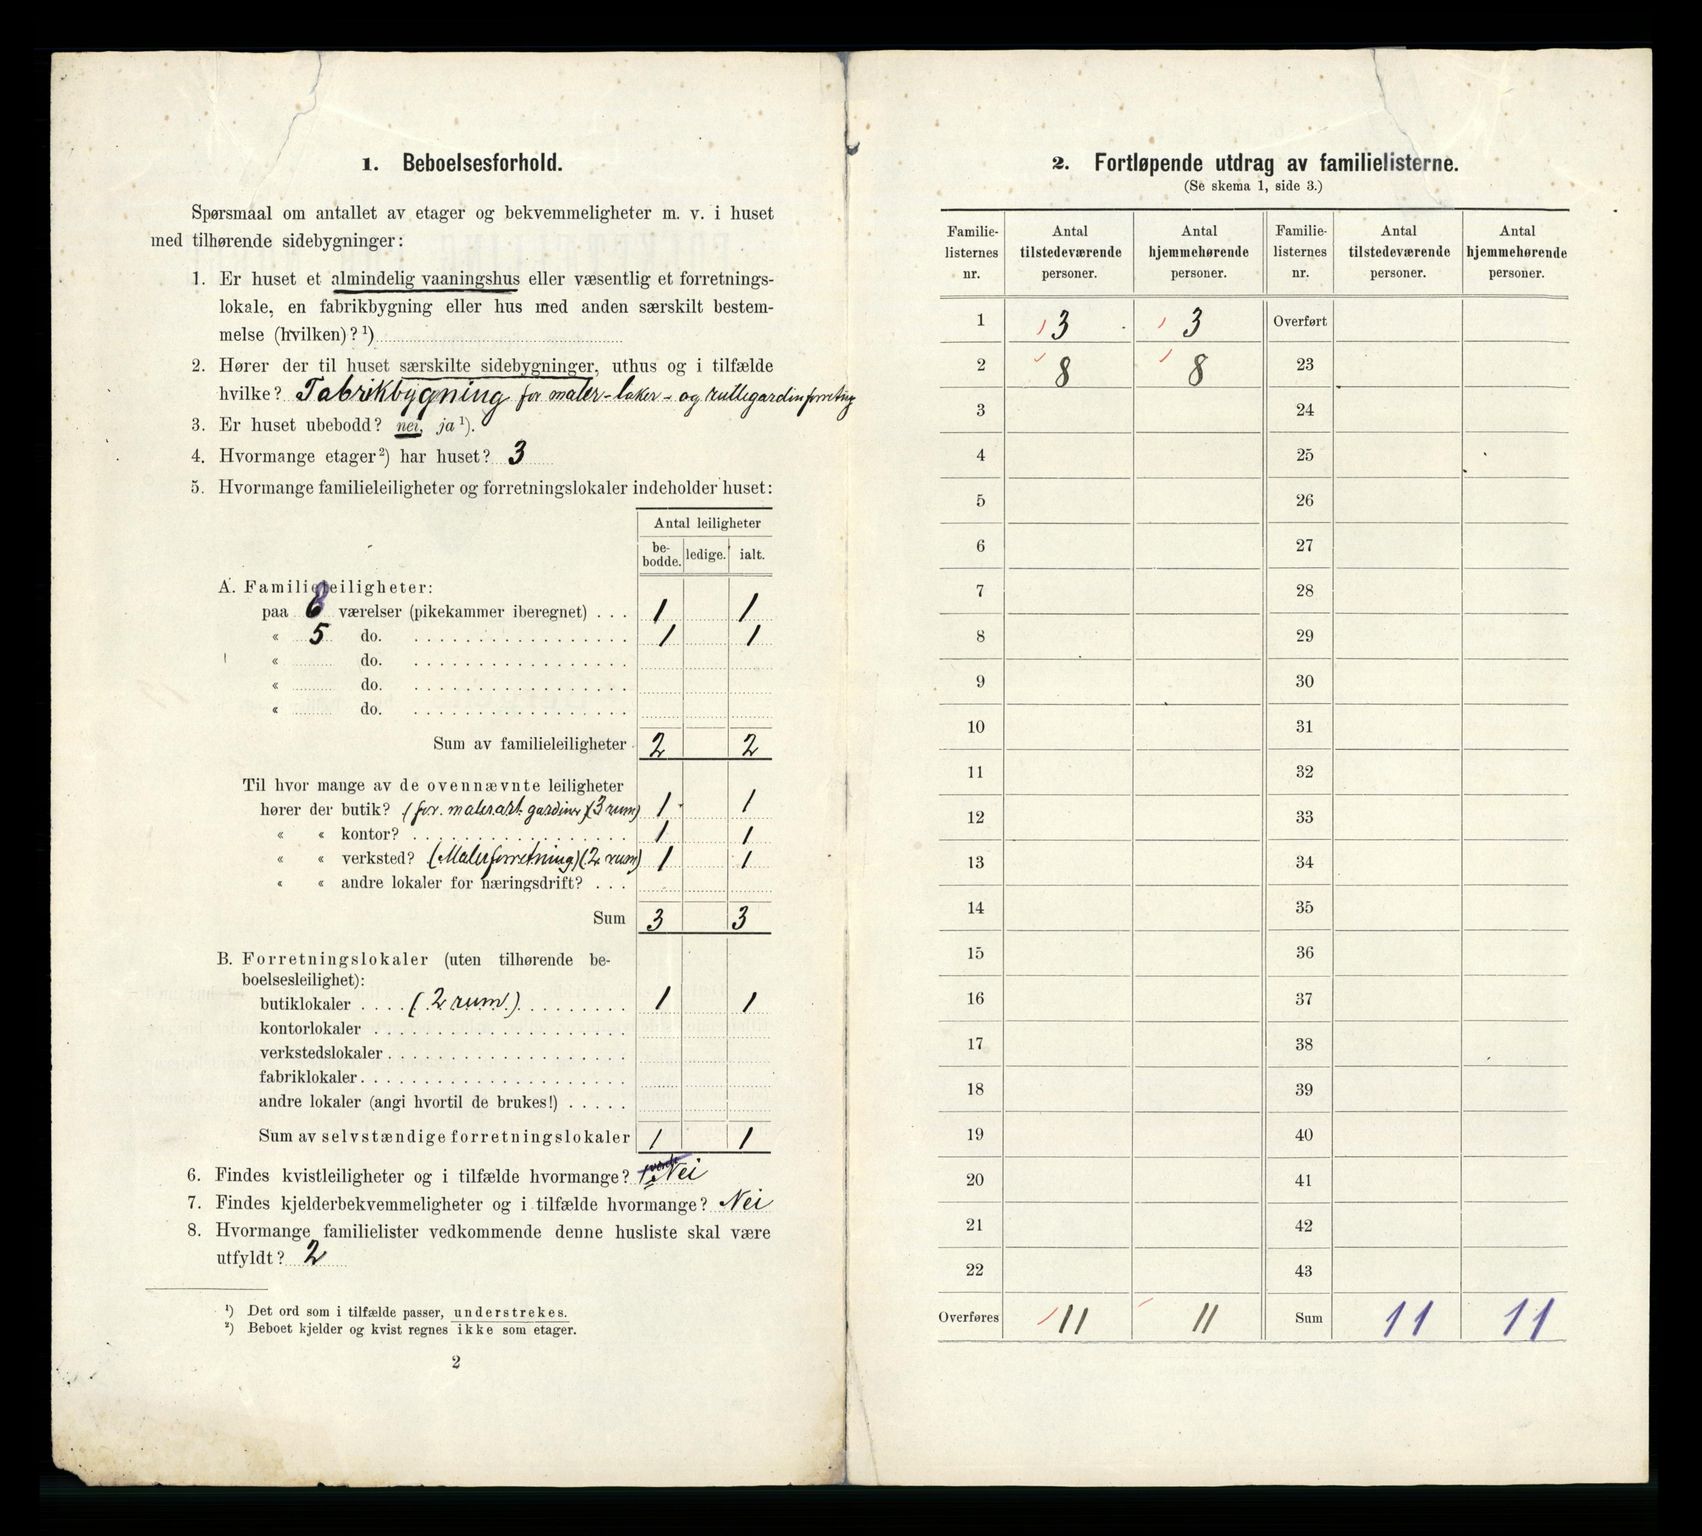 1. Beboelsesforhold.
Spørsmaal om antallet av etager og bekvemmeligheter m. v. i huset
med tilhørende sidebygninger:
1. Er huset et almindelig vaaningshus eller væsentlig et forretnings-
lokale, en fabrikbygning eller hus med anden særskilt bestem-
melse (hvilken)? ¹)
2. Hører der til huset særskilte sidebygninger, uthus og i tilfælde
hvilke? Fabrikbygning for maler-laker- og rullegardinforretng
3. Er huset ubebodd? nei, ja ¹).
4. Hvormange etager ²) har huset? 3
5. Hvormange familieleiligheter og forretningslokaler indeholder huset:
Antal leiligheter
be-
bodde. ledige. ialt.
A. Familieleiligheter:
paa 6 værelser (pikekammer iberegnet) . . . 1 1
« 5 do. 1 1
« do.
« do.
« do.
Sum av familieleiligheter 2 2
Til hvor mange av de ovennævnte leiligheter
hører der butik? (for. malerart. gardiner) (3 rum) 1 1
« « kontor? 1 1
« « verksted? (Malerforretning) (2 rum) 1 1
« « andre lokaler for næringsdrift? . . .
Sum 3 3
B. Forretningslokaler (uten tilhørende be-
boelsesleilighet):
butiklokaler (2 rum.) 1 1
kontorlokaler
verkstedslokaler
fabriklokaler
andre lokaler (angi hvortil de brukes!)
Sum av selvstændige forretningslokaler 1 1
6. Findes kvistleiligheter og i tilfælde hvormange? Nei
7. Findes kjelderbekvemmeligheter og i tilfælde hvormange? Nei
8. Hvormange familielister vedkommende denne husliste skal være
utfyldt? 2
¹) Det ord som i tilfælde passer, understrekes.
²) Beboet kjelder og kvist regnes ikke som etager.
2
2. Fortløpende utdrag av familielisterne.
(Se skema 1, side 3.)
Familie-
listernes
nr. Antal
tilstedeværende
personer. Antal
hjemmehørende
personer. Familie-
listernes
nr. Antal
tilstedeværende
personer. Antal
hjemmehørende
personer.
1 3 3 Overført
2 8 8 23
3 24
4 25
5 26
6 27
7 28
8 29
9 30
10 31
11 32
12 33
13 34
14 35
15 36
16 37
17 38
18 39
19 40
20 41
21 42
22 43
Overføres 11 11 Sum 11 11